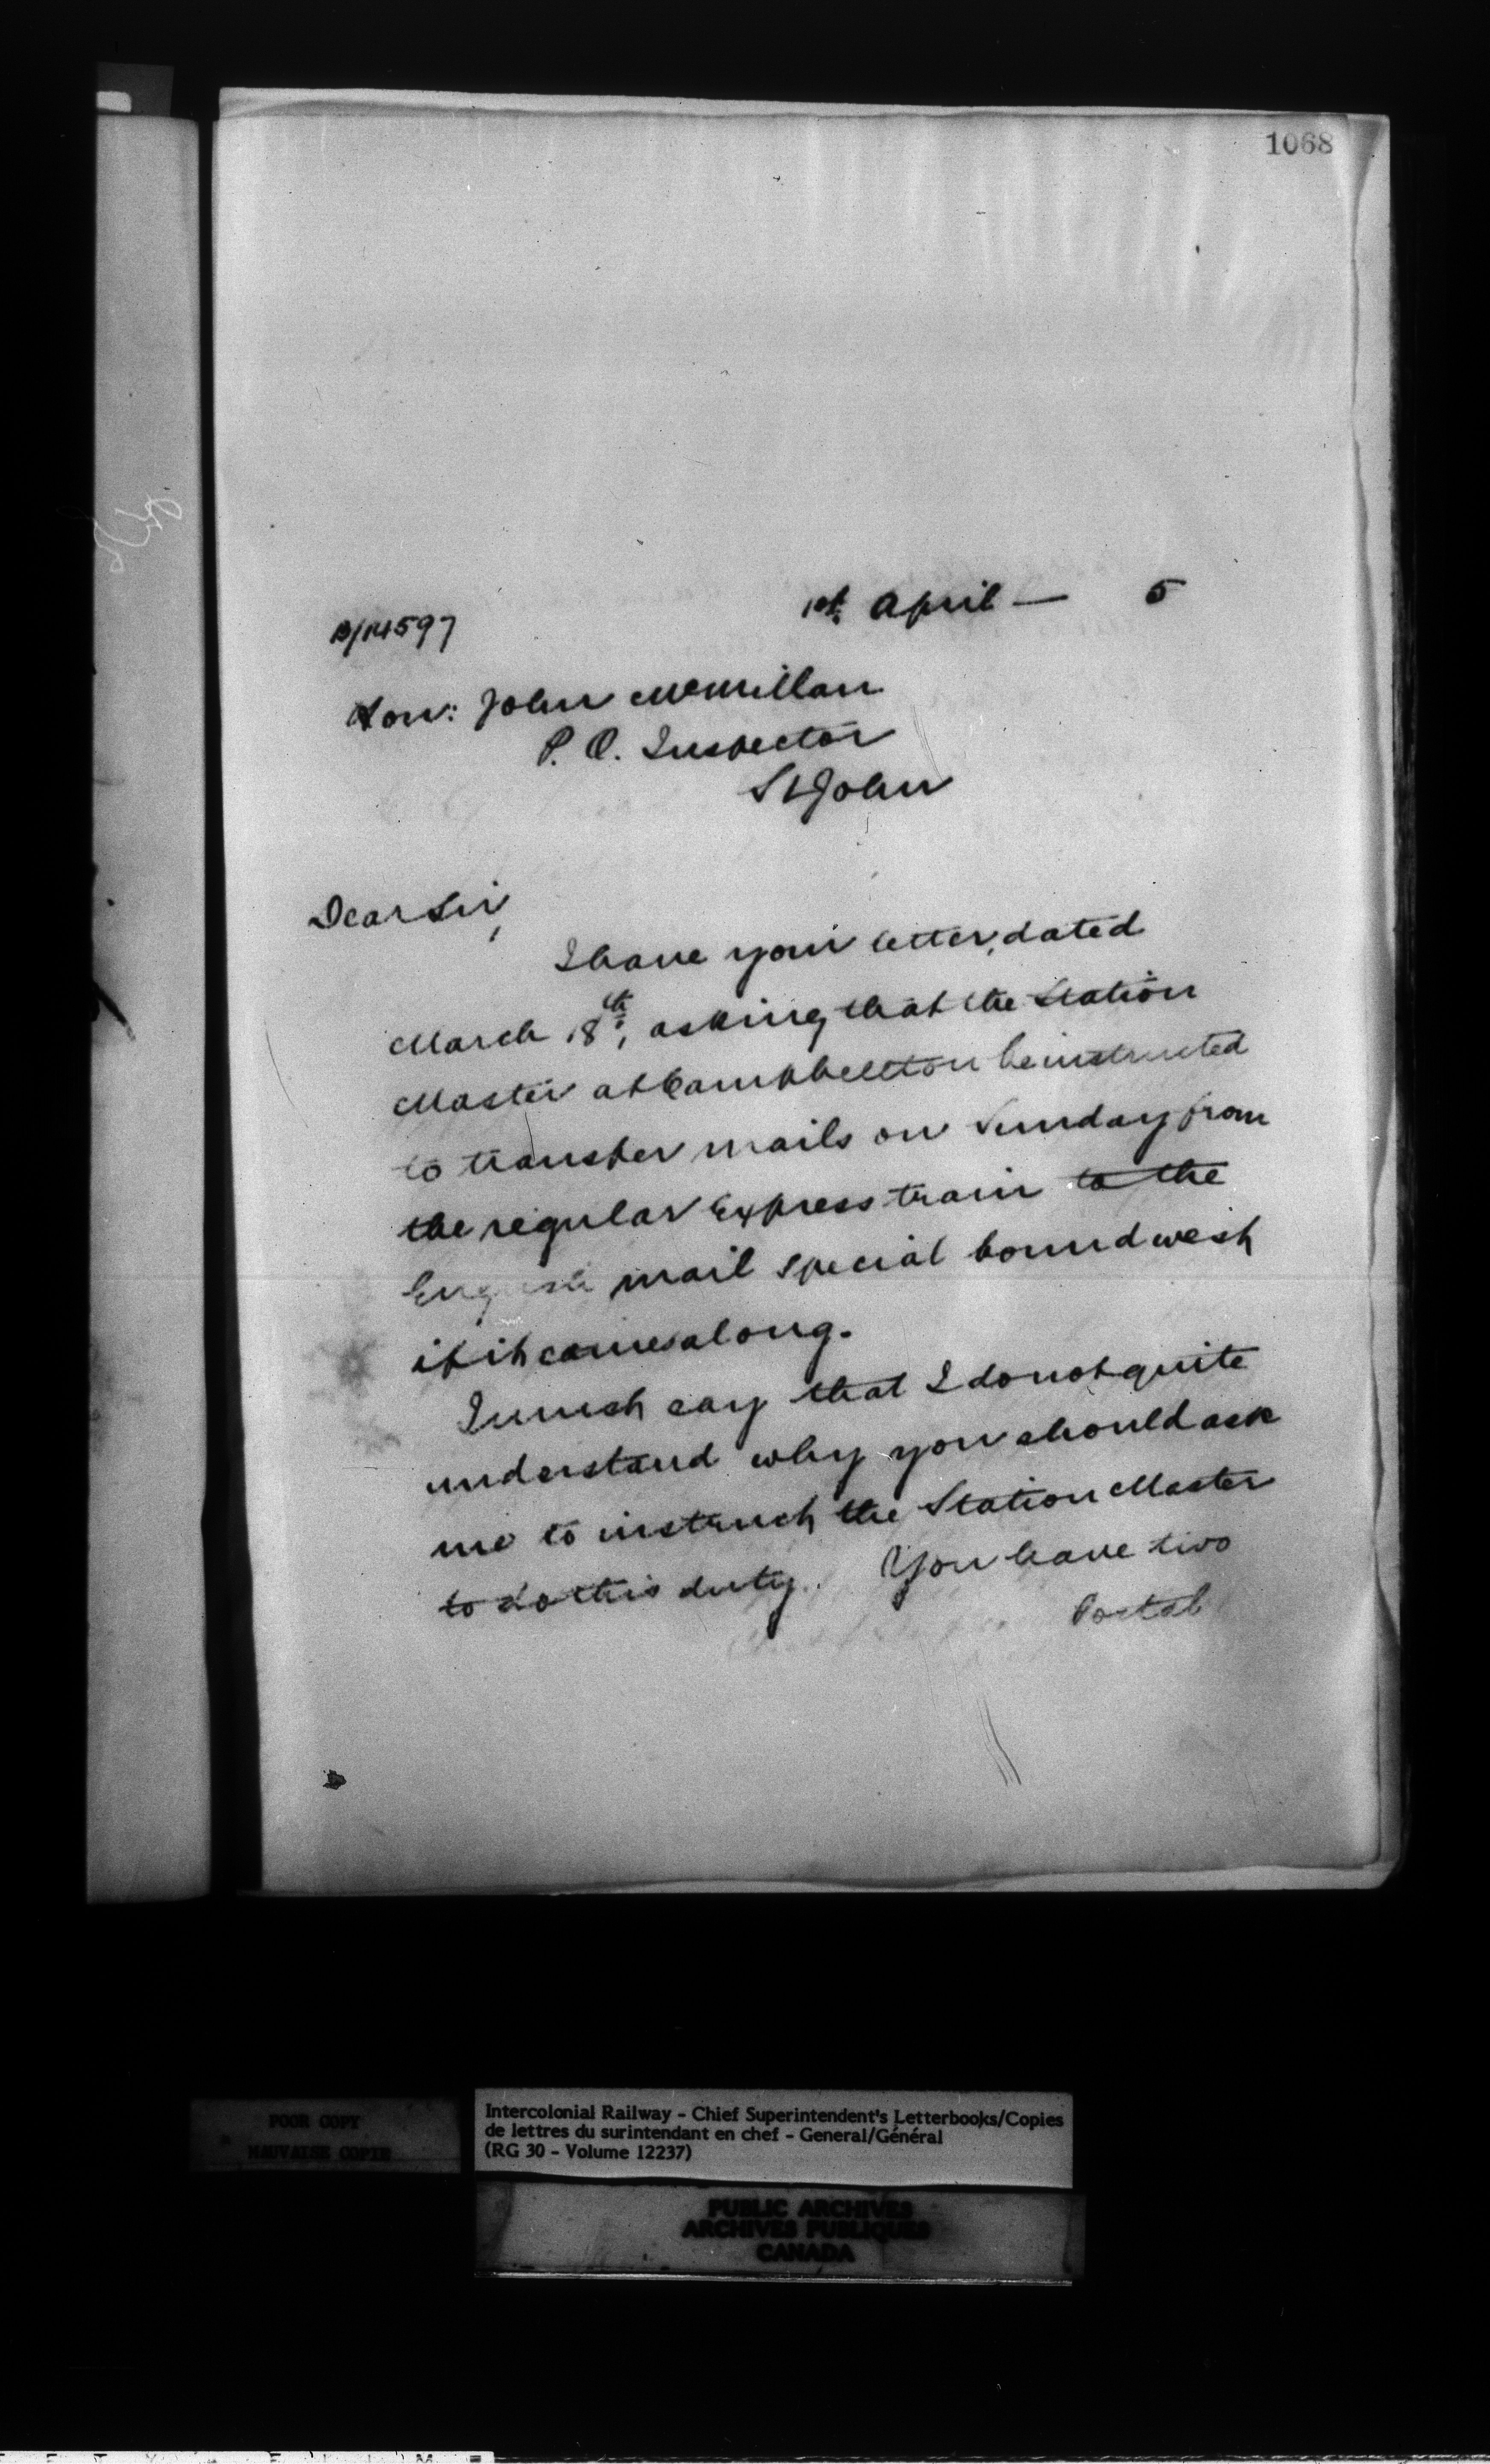 1068
1st. April — 5
B/14597
Hon: John McMillan
P. O. Inspector
St John
Dear Sir,
I have your letter, dated
March 18th, asking that the Station
Master at Campbellton be instructed
to transfer mails on Sunday from
the regular Express train to the
English mail special bound west
if it comes along.
I must say that I do not quite
understand why you should ask
me to instruct the Station Master
to do this duty. You have two
Postal
POOR COPY
MAUVAISE COPIE
Intercolonial Railway - Chief Superintendent's Letterbooks/Copies
de lettres du surintendant en chef - General/Général
(RG 30 - Volume 12237)
PUBLIC ARCHIVES
ARCHIVES PUBLIQUES
CANADA